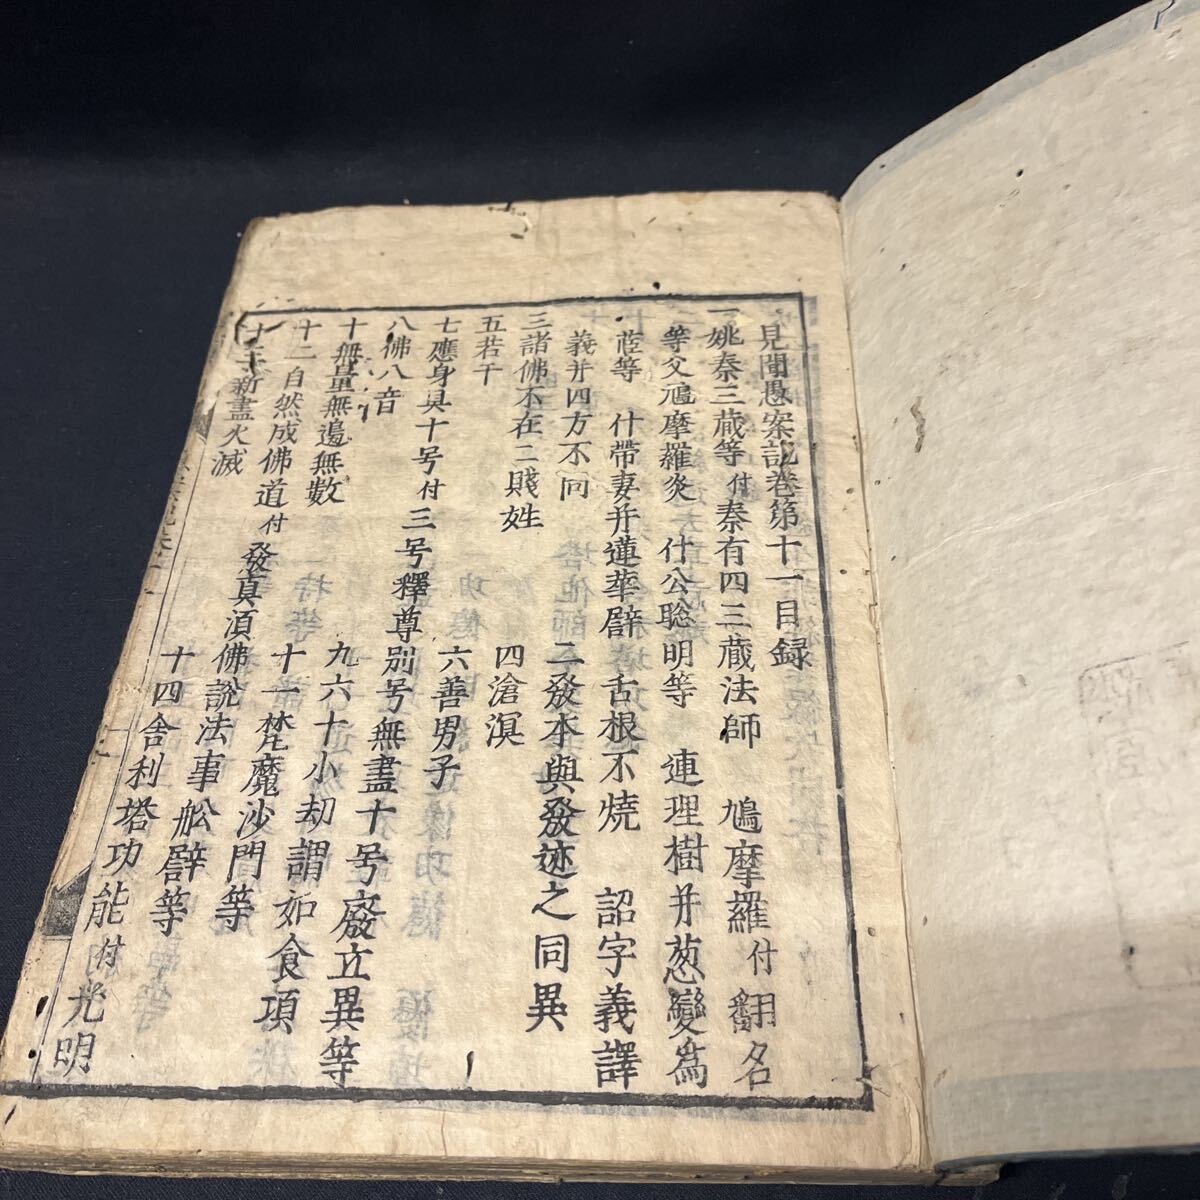 見聞愚案記巻第十一目録
一姚秦三蔵等付秦有四三蔵法師　鳩摩羅付翻名
等父鳩摩羅炎　什公聡明等　連理樹并葱變爲
茝等　什帶妻并蓮華　舌根不焼　詔字義譯
義并四方不同　二發本與發迹之同異
三諸佛不在二賤姓　四滄溟
五若干　六善男子
七應身具十号付三号釋尊別号無盡十号廢立異等
八佛八音　九六十小却謂如食項
十無量無邊無數　十一梵魔沙門等
十二自然成佛道付發真湏佛説法事舩辟等
十三新盡火滅　十四舎利塔功能付光明